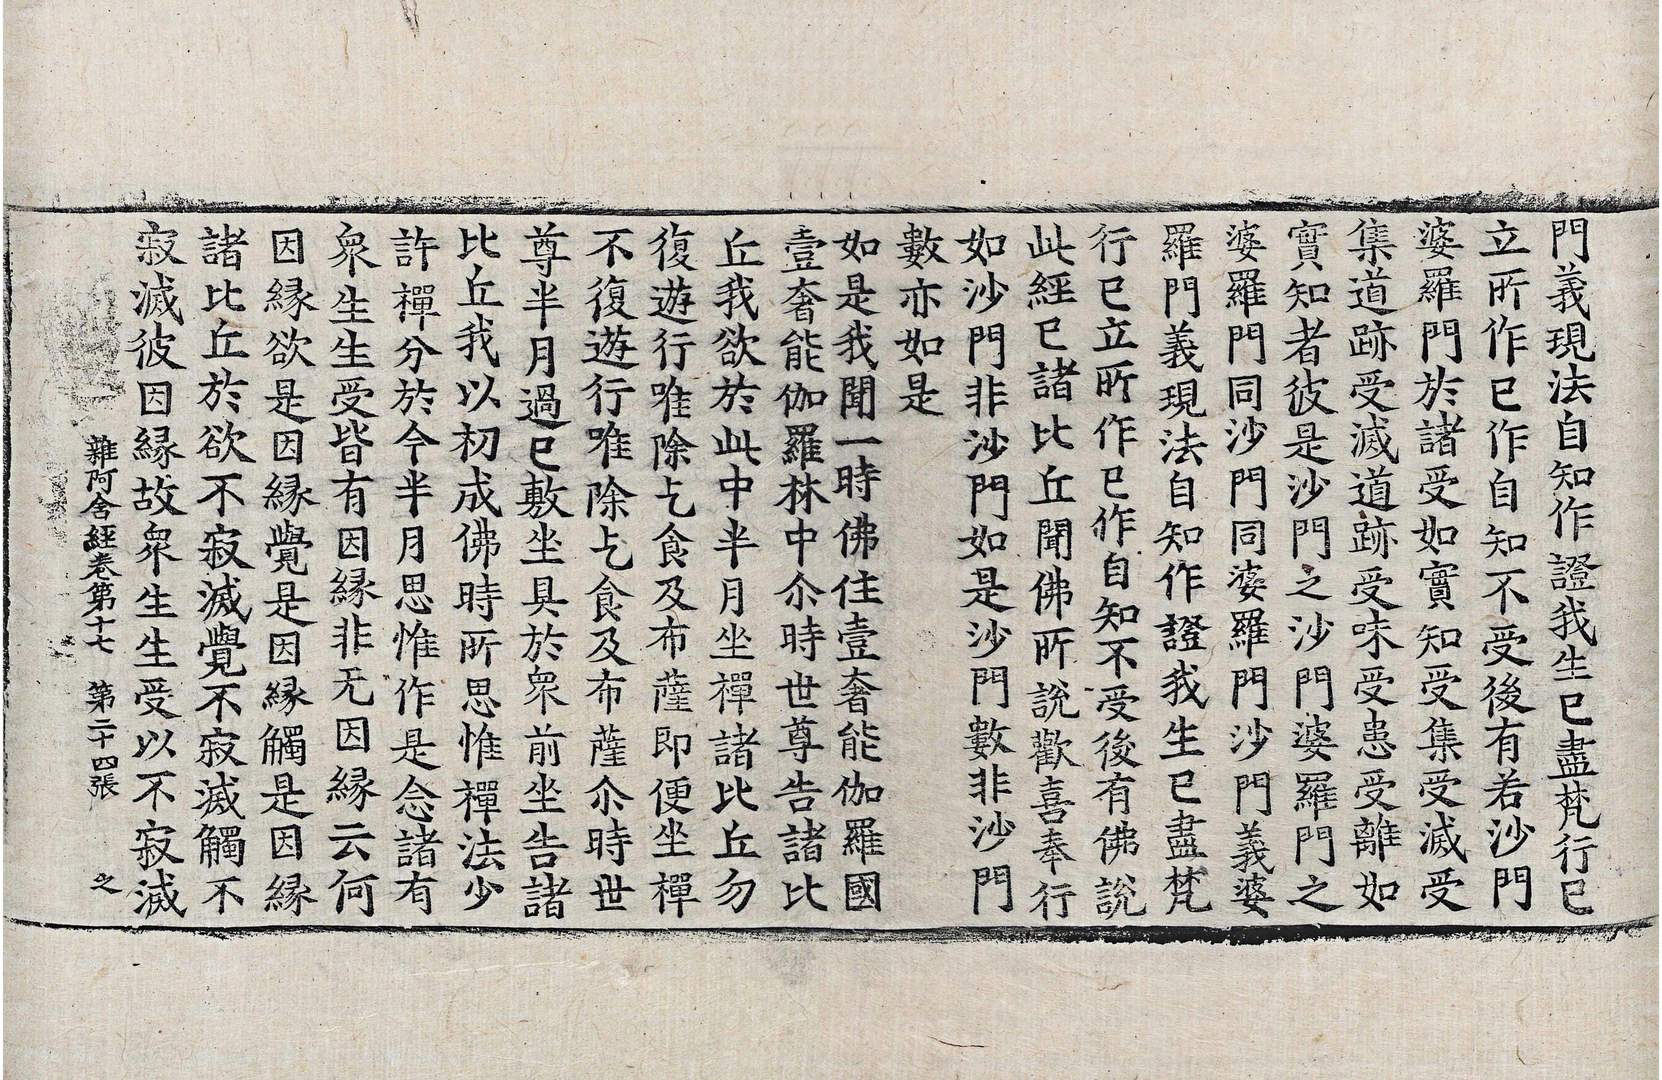 門義現法自知作證我生已盡梵行已
立所作已作自知不受後有若沙門
婆羅門於諸受如實知受集受滅受
集道跡受滅道跡受味受患受離如
實知者彼是沙門之沙門婆羅門之
婆羅門同沙門同婆羅門沙門義婆
羅門義現法自知作證我生已盡梵
行已立所作已作自知不受後有佛說
此經已諸比丘聞佛所說歡喜奉行
如沙門非沙門如是沙門數非沙門
數亦如是
如是我聞一時佛住壹奢能伽羅國
壹奢能伽羅林中尒時世尊告諸比
丘我欲於此中半月坐禪諸比丘勿
復遊行唯除乞食及布薩即便坐禪
不復遊行唯除乞食及布薩尒時世
尊半月過已敷坐具於衆前坐告諸
比丘我以初成佛時所思惟禪法少
許禪分於今半月思惟作是念諸有
衆生生受皆有因緣非无因緣云何
因緣欲是因緣覺是因緣觸是因緣
諸比丘於欲不寂滅覺不寂滅觸不
寂滅彼因緣故衆生生受以不寂滅
雜阿含經卷第十七 第二十四張 之